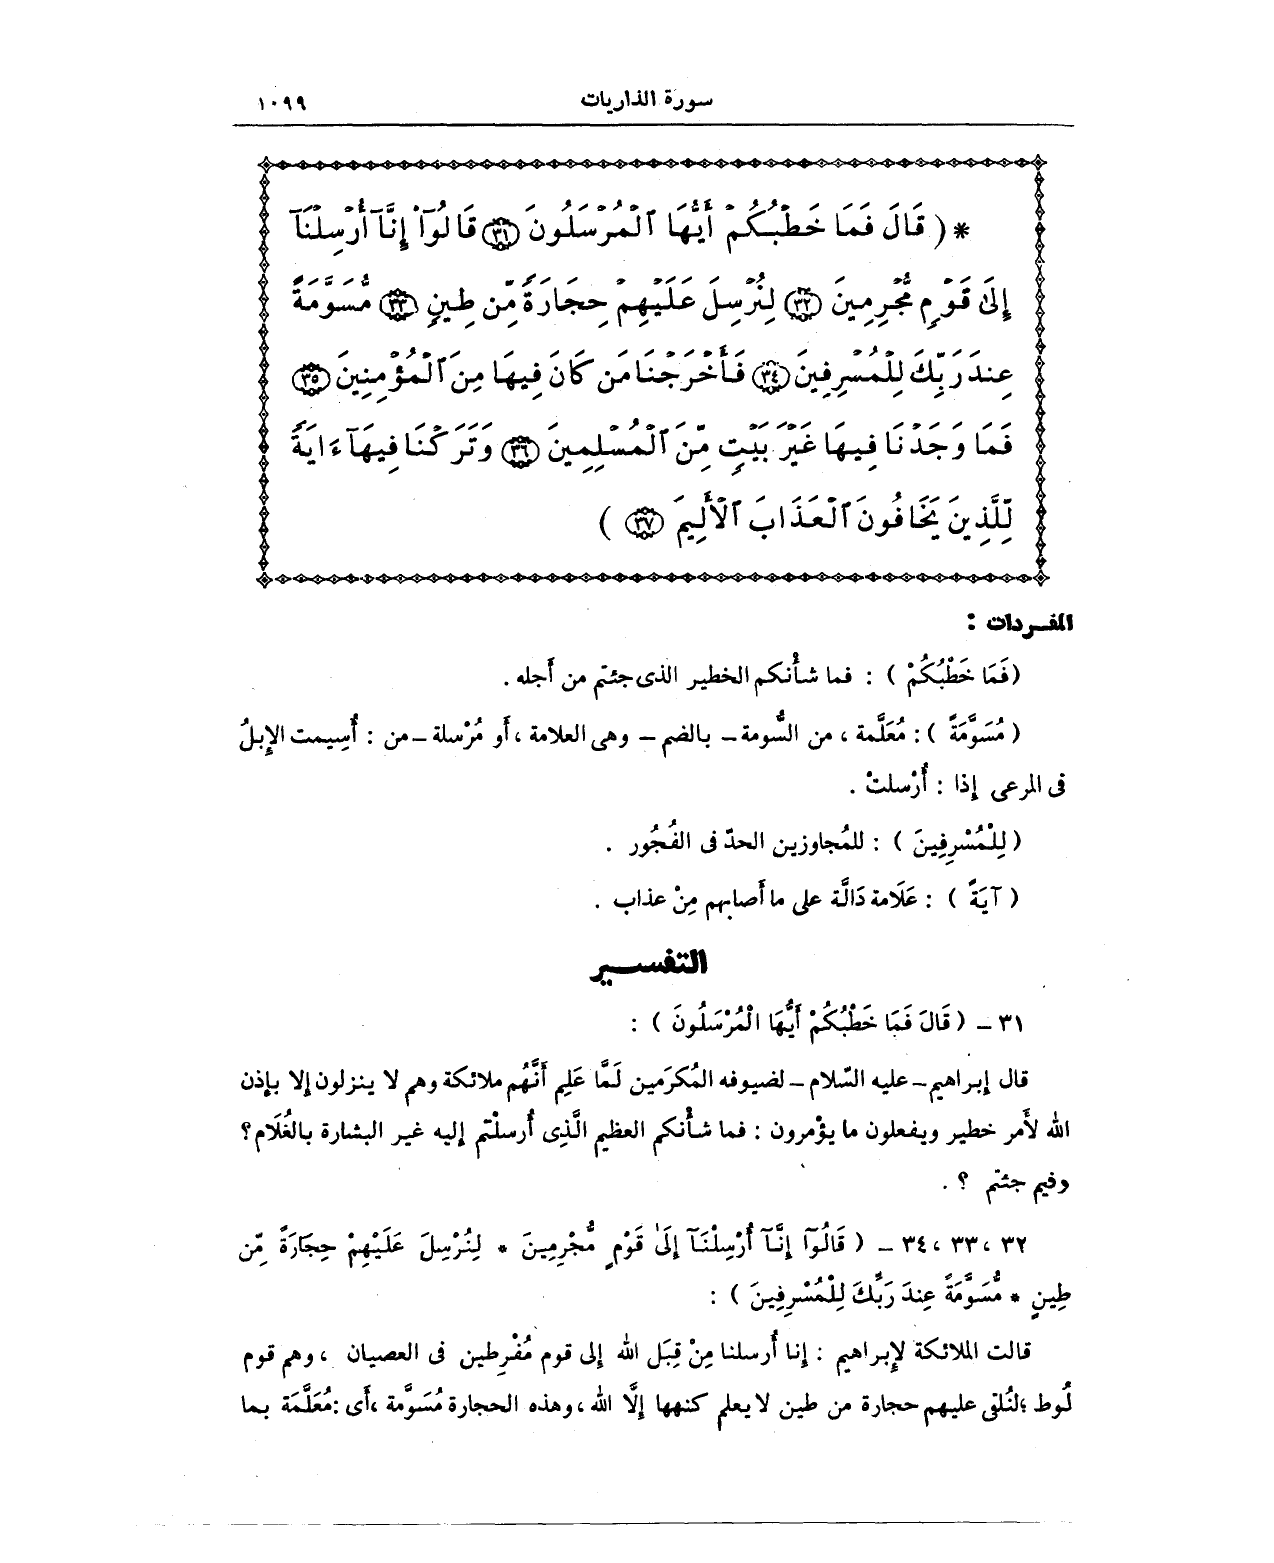 سورة الذاريات ١٠٩٩
* ( قَالَ فَمَا خَطْبُكُمْ أَيُّهَا ٱلْمُرْسَلُونَ ٣١ قَالُوٓا۟ إِنَّآ أُرْسِلْنَآ
إِلَىٰ قَوْمٍ مُّجْرِمِينَ ٣٢ لِنُرْسِلَ عَلَيْهِمْ حِجَارَةً مِّن طِينٍ ٣٣ مُّسَوَّمَةً
عِندَ رَبِّكَ لِلْمُسْرِفِينَ ٣٤ فَأَخْرَجْنَا مَن كَانَ فِيهَا مِنَ ٱلْمُؤْمِنِينَ ٣٥
فَمَا وَجَدْنَا فِيهَا غَيْرَ بَيْتٍ مِّنَ ٱلْمُسْلِمِينَ ٣٦ وَتَرَكْنَا فِيهَآ ءَايَةً
لِّلَّذِينَ يَخَافُونَ ٱلْعَذَابَ ٱلْأَلِيمَ ٣٧ )
المفردات :
(فَمَا خَطْبُكُمْ ) : فما شأنكم الخطير الذى جئتم من أجله .
( مُسَوَّمَةً ) : مُعَلَّمة ، من السُّومة ــ بالضم ــ وهى العلامة ، أو مُرْسلة ــ من : أُسِيمت الإبلُ
فى المرعى إذا : أُرْسلتْ .
( لِلْمُسْرِفِينَ ) : للمُجاوزين الحدّ فى الفُجُور .
( آيَةً ) : عَلَامة دَالَّة على ما أصابهم مِنْ عذاب .
التفسير
٣١ ــ ( قَالَ فَمَا خَطْبُكُمْ أَيُّهَا الْمُرْسَلُونَ ) :
قال إبراهيم ــ عليه السّلام ــ لضيوفه المُكرَمين لَمَّا عَلِم أَنَّهُم ملائكة وهم لا ينزلون إلا بإذن
الله لأَمر خطير ويفعلون ما يؤمرون : فما شأنكم العظيم الَّذِى أُرسلْتم إليه غير البشارة بالغُلَام؟
وفيم جئتم ؟ .
٣٢ ، ٣٣ ، ٣٤ ــ ( قَالُوٓا إِنَّآ أُرْسِلْنَآ إِلَىٰ قَوْمٍ مُّجْرِمِينَ * لِنُرْسِلَ عَلَيْهِمْ حِجَارَةً مِّن
طِينٍ * مُّسَوَّمَةً عِندَ رَبِّكَ لِلْمُسْرِفِينَ ) :
قالت الملائكة لإبراهيم : إنا أُرسلنا مِنْ قِبَل الله إلى قوم مُفْرِطين فى العصيان ، وهم قوم
لُوط ؛ لنُلقى عليهم حجارة من طين لا يعلم كنهها إلَّا الله ، وهذه الحجارة مُسَوَّمة ، أى : مُعَلَّمَة بما